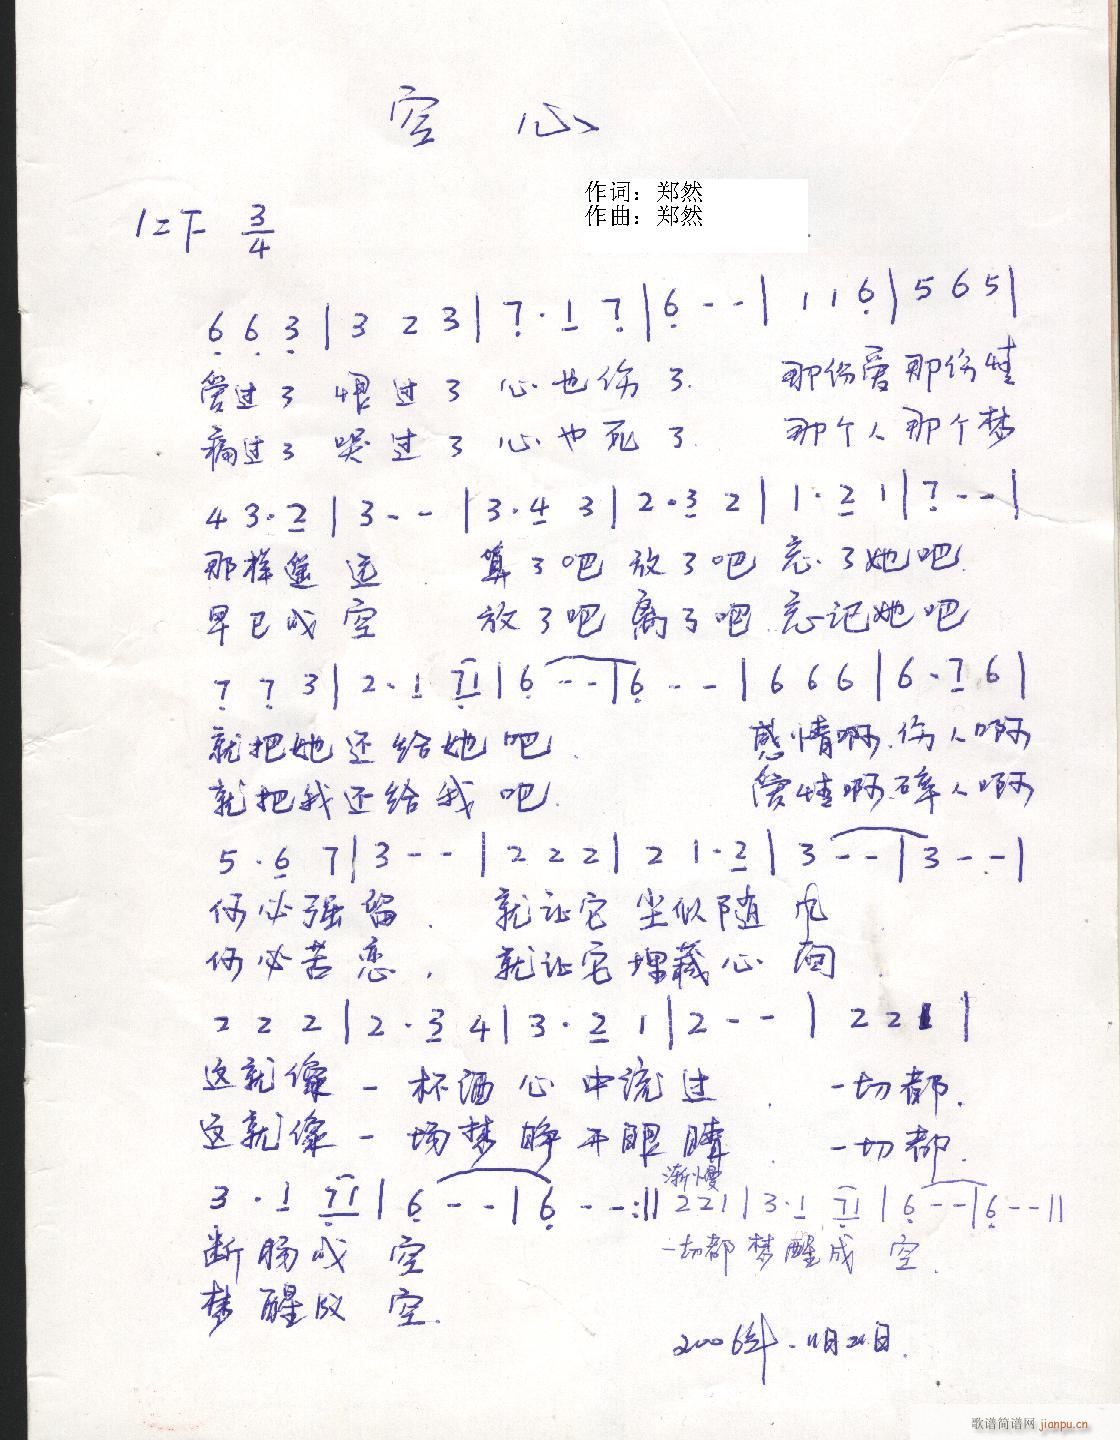 空 心
作词：郑然
作曲：郑然
1=F 3/4
6 6 3 | 3 2 3 | 7·1 7 | 6 - - | 1 1 6 | 5 6 5 |
爱过了 恨过了 心也伤了. 那份爱那份情
痛过了 哭过了 心也死了. 那个人那个梦
4 3·2 | 3 - - | 3·4 3 | 2·3 2 | 1·2 1 | 7 - - |
那样遥远. 算了吧 放了吧 忘了她吧.
早已成空 放了吧 离了吧 忘记她吧
7 7 3 | 2·1 71 | 6 - - | 6 - - | 6 6 6 | 6·7 6 |
就把她还给她吧. 感情啊.伤人啊
就把我还给我吧. 爱情啊.碎人啊
5·6 7 | 3 - - | 2 2 2 | 2 1·2 | 3 - - | 3 - - |
何必强留. 就让它尘似随风.
何必苦恋. 就让它埋藏心间.
2 2 2 | 2·3 4 | 3·2 1 | 2 - - | 2 2 1 |
这就像一杯酒心中流过. 一切都.
这就像一场梦睁开眼睛. 一切都.
渐慢
3·1 71 | 6 - - | 6 - - :|| 2 2 1 | 3·1 71 | 6 - - | 6 - - ||
断肠成空 一切都梦醒成空.
梦醒成空.
2006年.11月21日.
歌谱简谱网 jianpu.cn